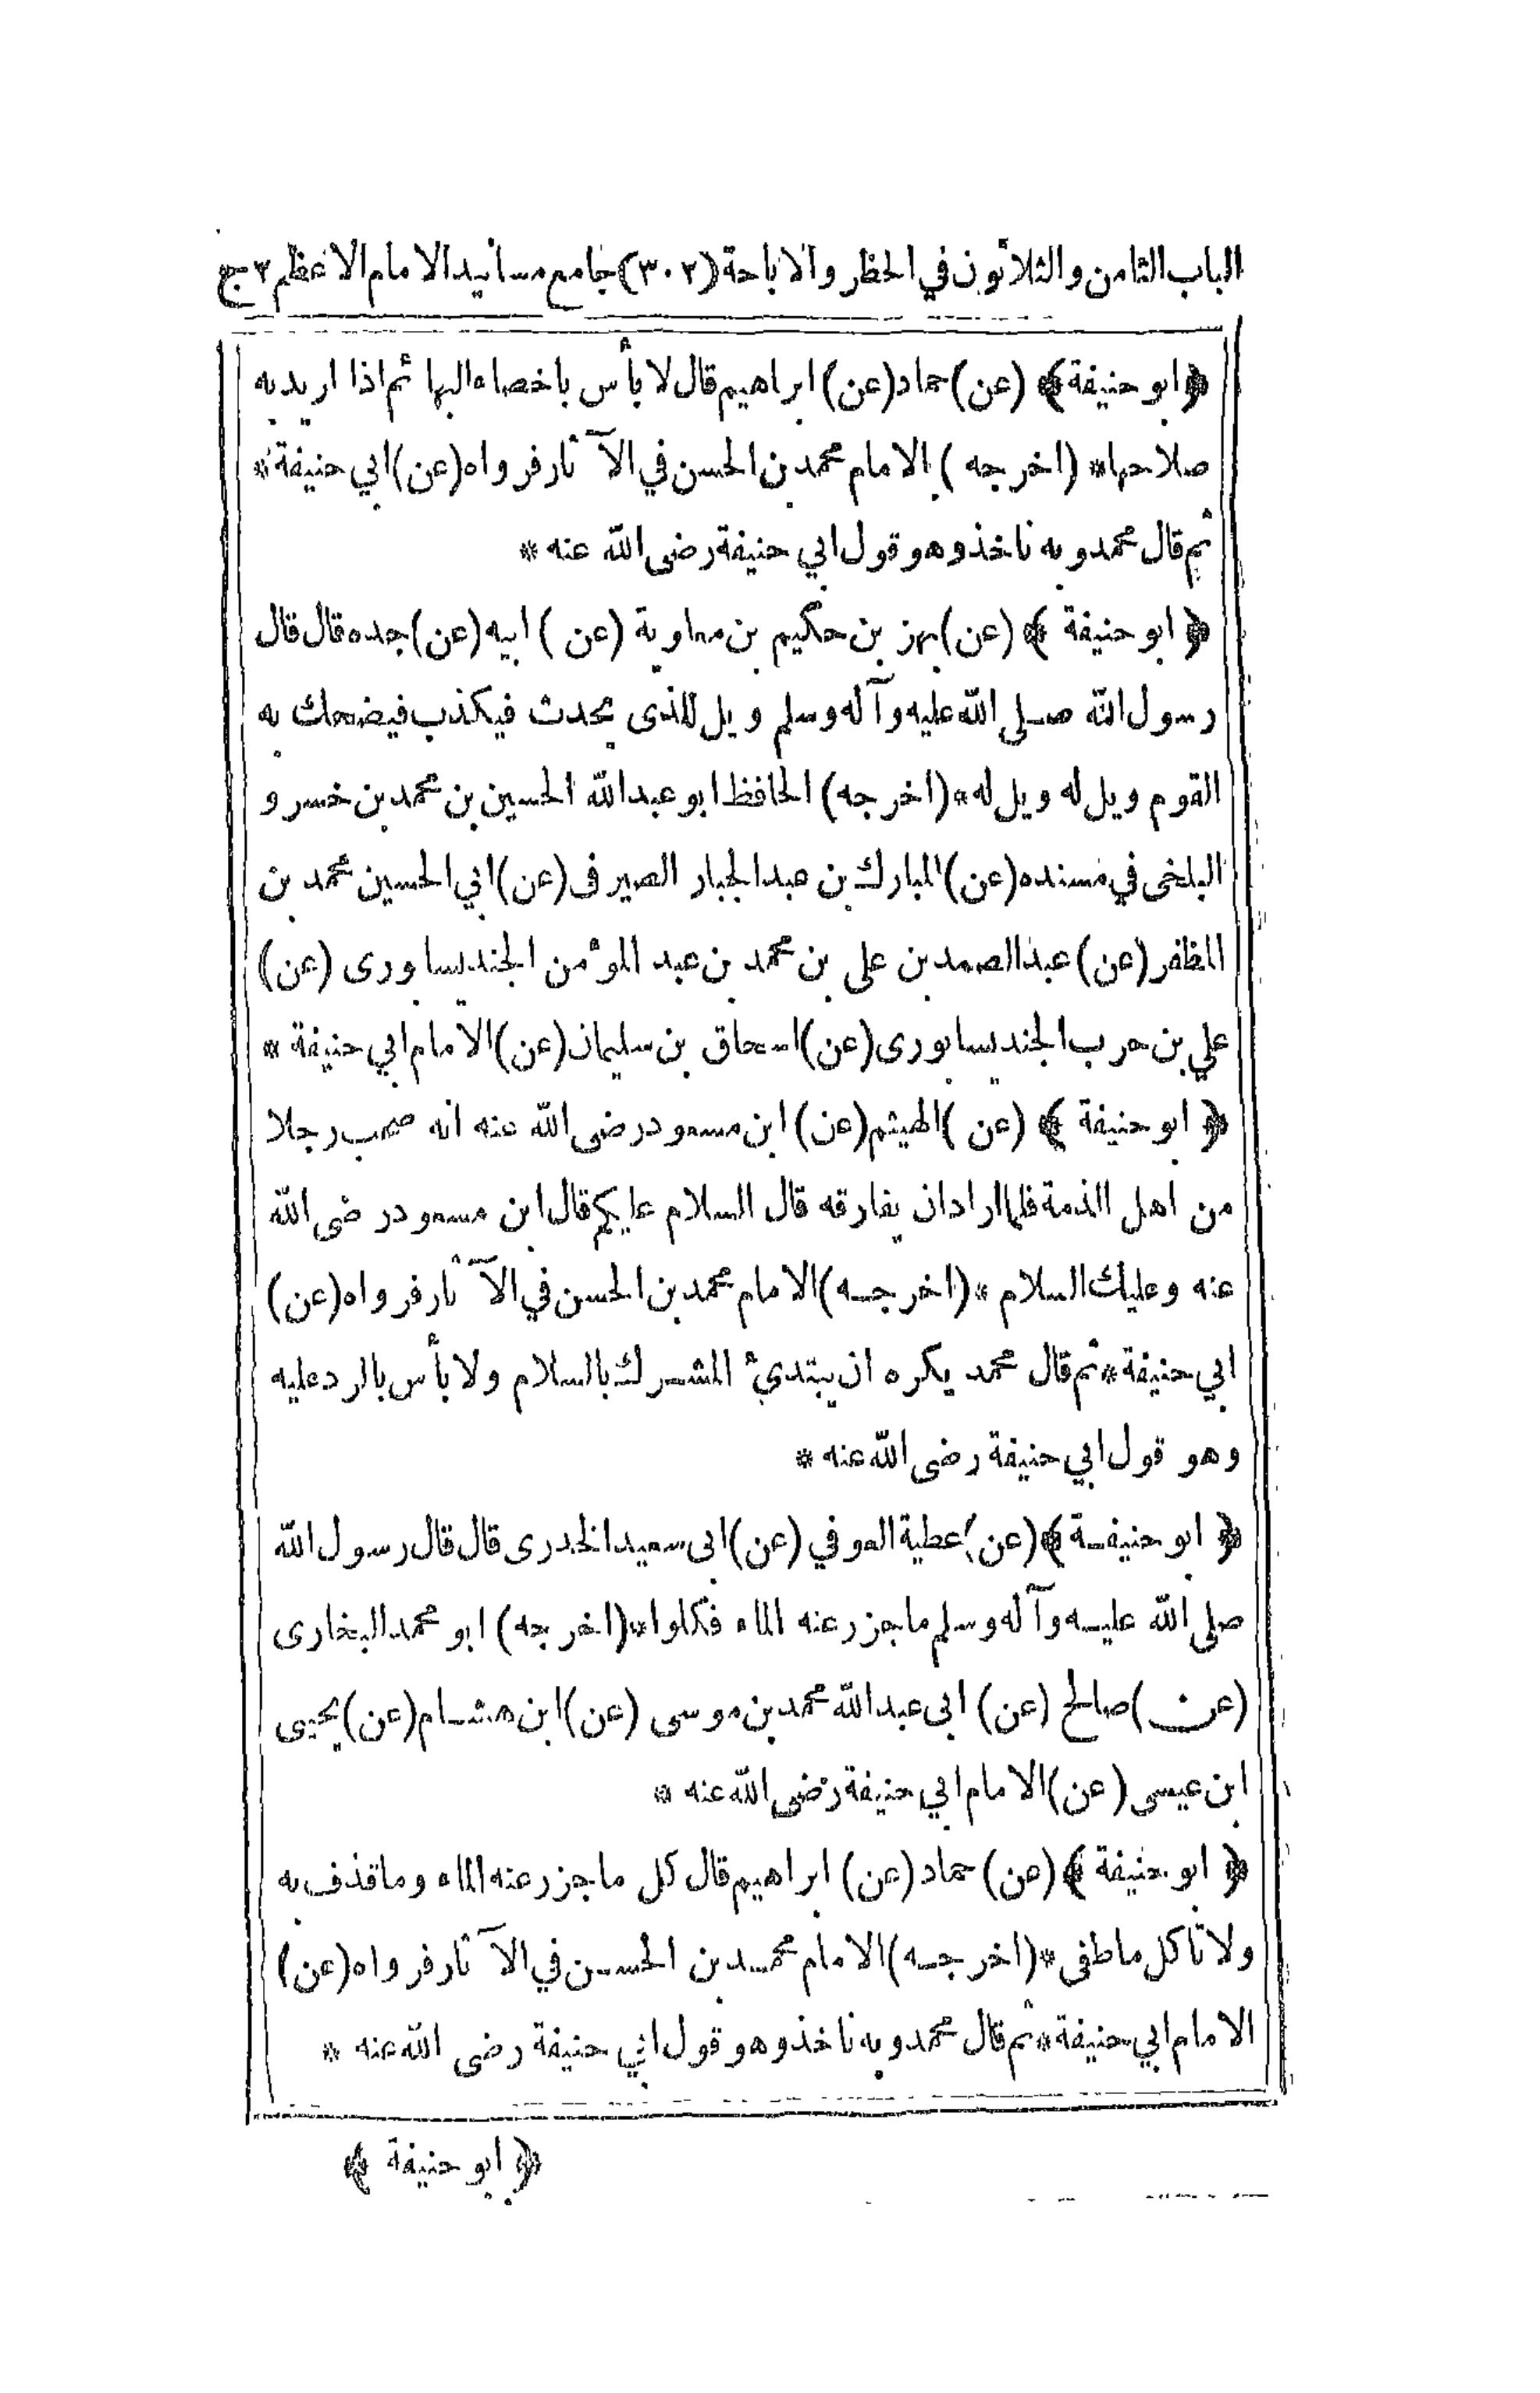 الباب الثامن والثلاثون في الحظر والاباحة (٣٠٢) جامع مسانيد الامام الاعظم ج٢
﴿ابو حنيفة﴾ (عن) حماد (عن) ابراهيم قال لا بأس باخصاء البهائم اذا اريد به
صلاحها* (اخرجه) الامام محمد بن الحسن في الآثار فرواه (عن) ابي حنيفة*
ثم قال محمد وبه ناخذ وهو قول ابي حنيفة رضى الله عنه *
﴿ ابو حنيفة ﴾ (عن) بهز بن حكيم بن معاوية (عن) ابيه (عن) جده قال قال
رسول الله صلى الله عليه وآله وسلم ويل للذى يحدث فيكذب فيضحك به
القوم ويل له ويل له* (اخرجه) الحافظ ابو عبد الله الحسين بن محمد بن خسرو
البلخى في مسنده (عن) المبارك بن عبد الجبار الصيرفى (عن) ابي الحسين محمد بن
المظفر (عن) عبد الصمد بن على بن محمد بن عبد المؤمن الجنديسابورى (عن)
علي بن حرب الجنديسابورى (عن) اسحاق بن سليمان (عن) الامام ابي حنيفة *
﴿ ابو حنيفة ﴾ (عن) الهيثم (عن) ابن مسعود رضى الله عنه انه صحب رجلا
من اهل الذمة فلما اراد ان يفارقه قال السلام عليكم قال ابن مسعود رضى الله
عنه وعليك السلام * (اخرجه) الامام محمد بن الحسن في الآثار فرواه (عن)
ابي حنيفة* ثم قال محمد يكره ان يبتدئ المشرك بالسلام ولا بأس بالرد عليه
وهو قول ابي حنيفة رضى الله عنه *
﴿ ابو حنيفة ﴾ (عن) عطية العوفي (عن) ابى سعيد الخدرى قال قال رسول الله
صلى الله عليه وآله وسلم ما جزر عنه الماء فكلوا* (اخرجه) ابو محمد البخارى
(عن) صالح (عن) ابى عبد الله محمد بن موسى (عن) ابن هشام (عن) يحيى
ابن عيسى (عن) الامام ابي حنيفة رضى الله عنه *
﴿ ابو حنيفة ﴾ (عن) حماد (عن) ابراهيم قال كل ما جزر عنه الماء وما قذف به
ولا تأكل ما طفى * (اخرجه) الامام محمد بن الحسن في الآثار فرواه (عن)
الامام ابي حنيفة* ثم قال محمد وبه ناخذ وهو قول ابي حنيفة رضى الله عنه *
﴿ ابو حنيفة ﴾